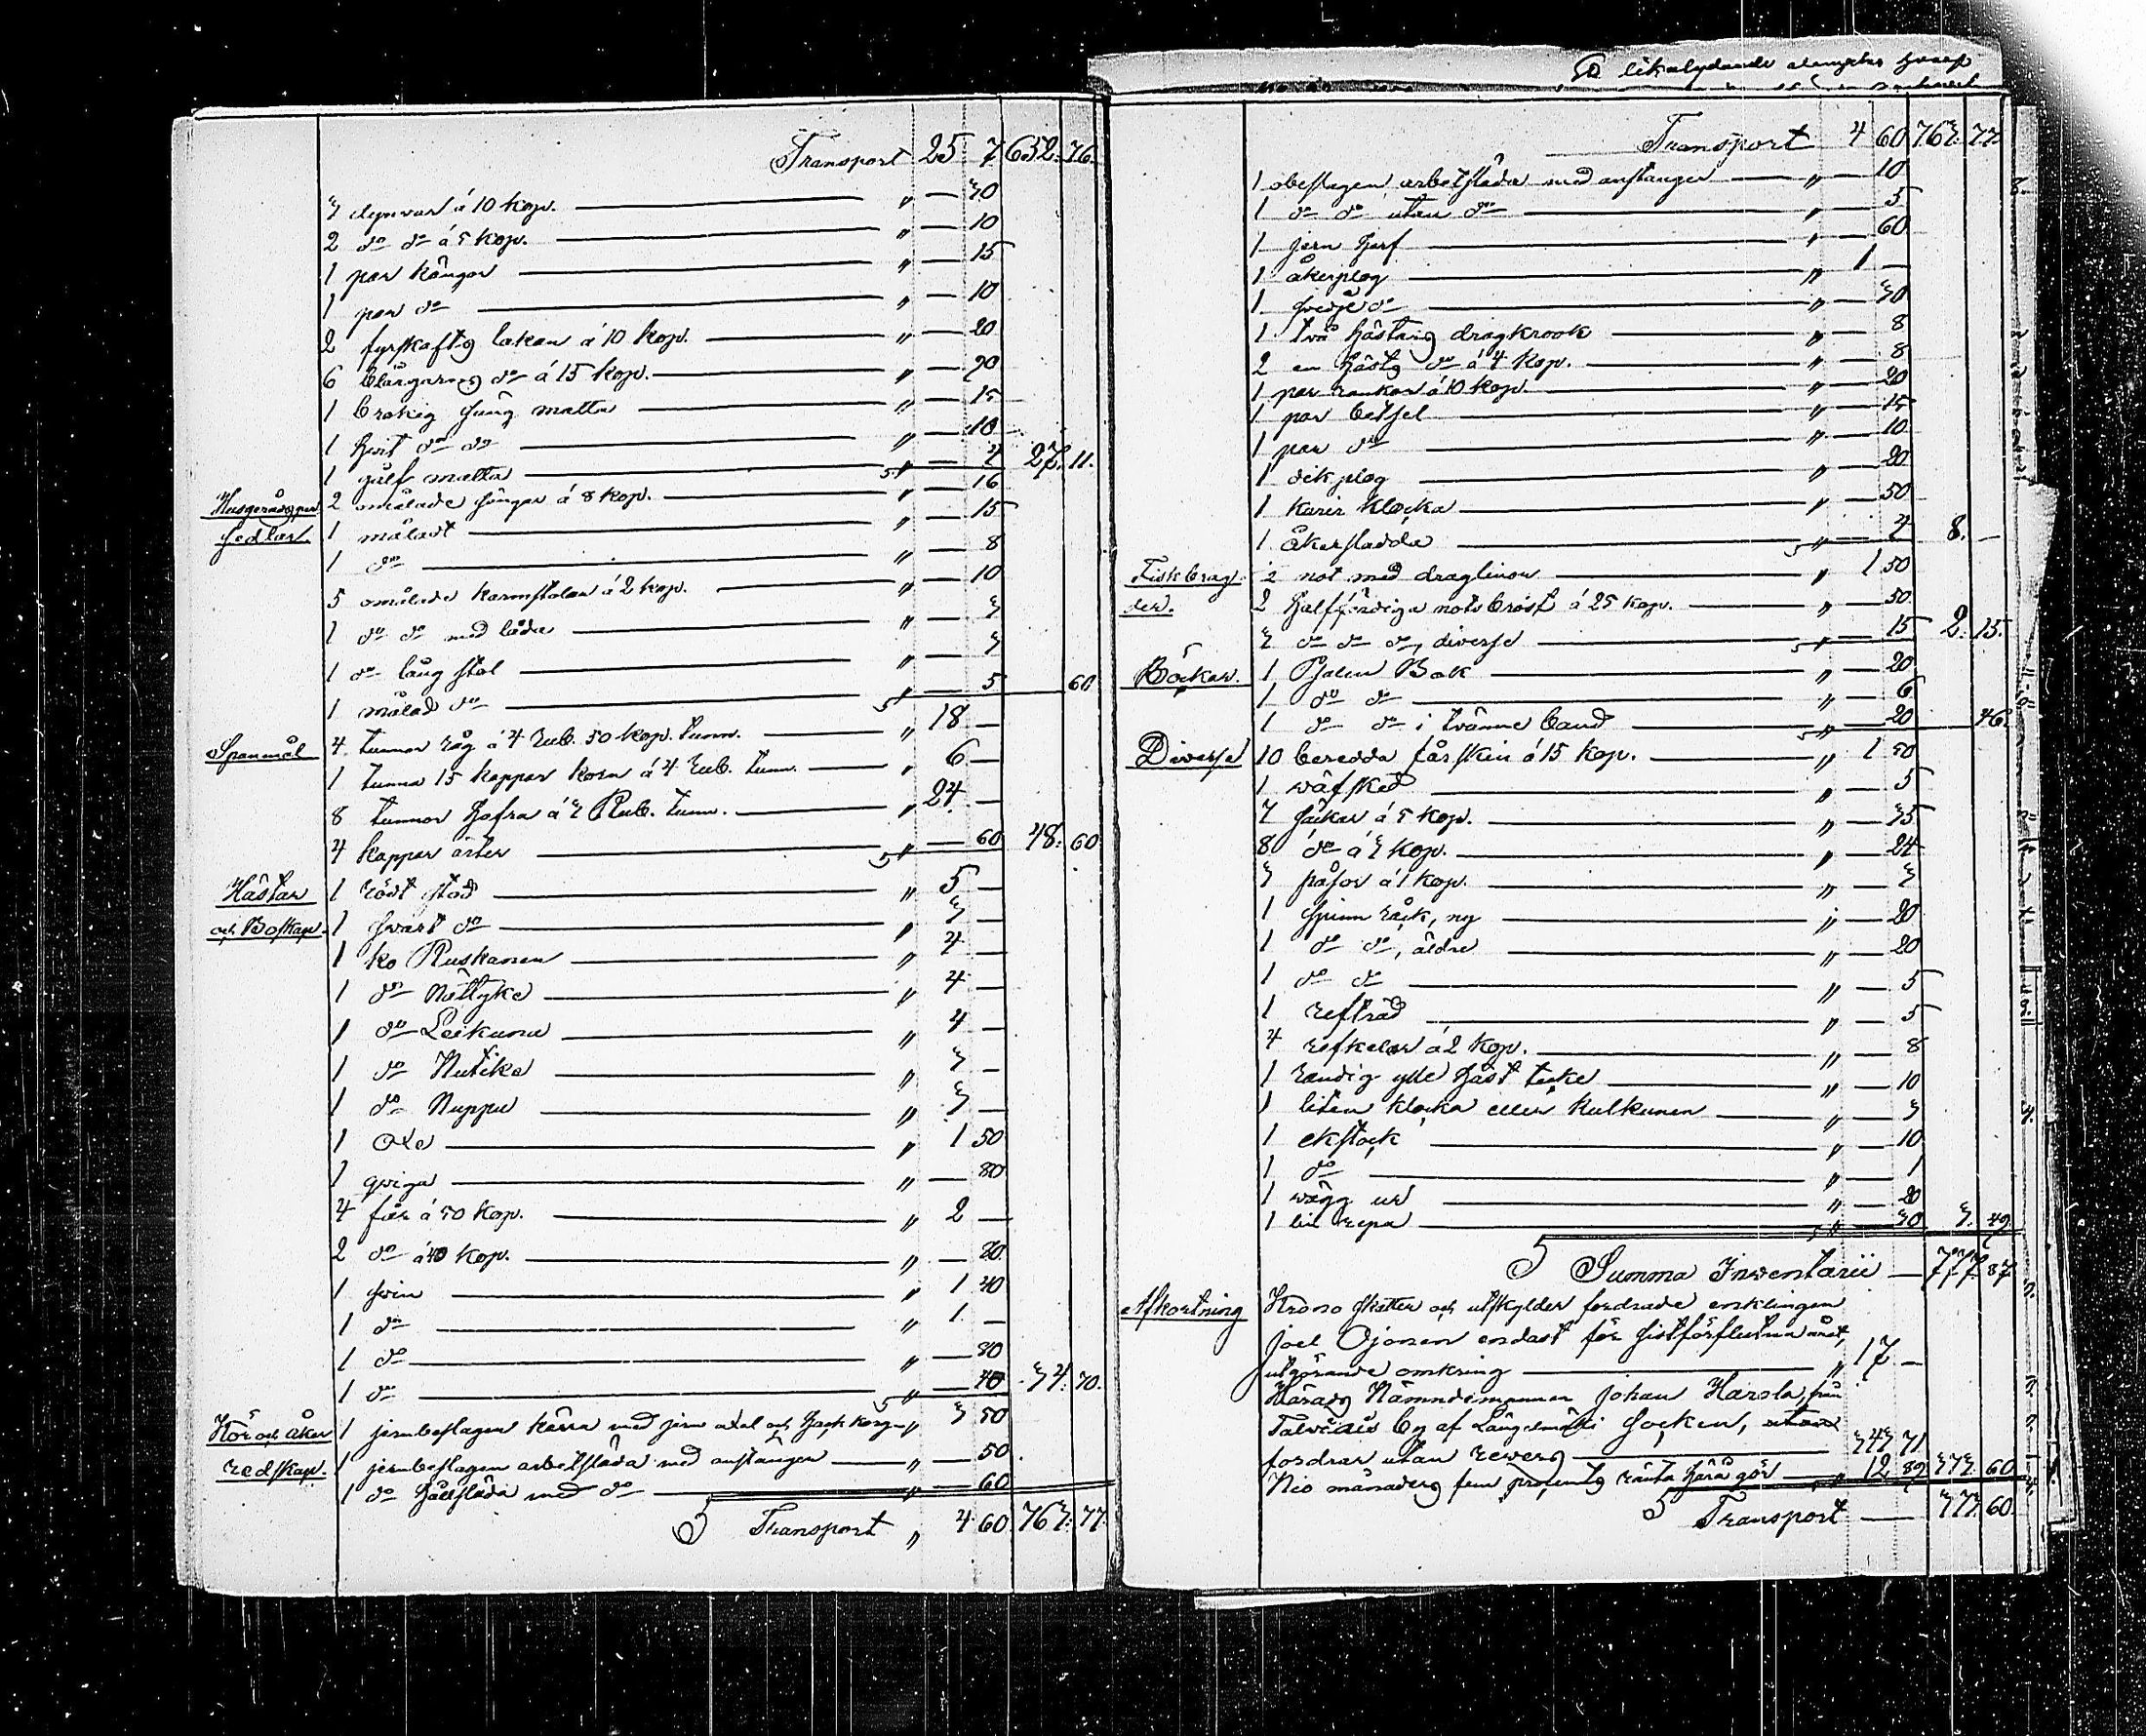 Transport 25 7 652. 76.
3 dynvar á 10 kop. " — 30
2 do do á 5 kop. " — 10
1 par kängor " — 15
1 par do " — 10
2 fyrskaftig lakan á 10 kop. " — 20
6 blångarns do á 15 kop. " — 90
1 brokig säng matta " — 15
1 hvit do do " — 10
1 gålf matta " — 4 27. 11.
Husgerådsper 2 omålade sängar á 8 kop. " — 16
sedlar. 1 måladt " — 15
1 do " — 8
5 omålade karmstolar á 2 kop. " — 10
1 do do med låda " — 3
1 do lång stol " — 3
1 målad do " — 5 60
Spanmål 4 tunnor råg á 4 Rub. 50 kop. tunn. " 18 —
1 tunna 15 kappar korn á 4 Rub. tunn. " 6 —
8 tunnor hafra á 3 Rub. tunn. " 24 —
4 kappar ärter " — 60 48. 60
Hästar 1 rödt stod " 5 —
och Boskap. 1 svart do " 3 —
1 ko Ruskanen " 4 —
1 do Nättyke " 4 —
1 do Leikuna " 4 —
1 do Hutika " 3 —
1 do Nuppu " 3 —
1 Oxe " 1 50
1 qviga " — 80
4 får á 50 kop. " 2 —
2 do á 40 kop. " — 80
1 svin " 1 40
1 do " 1 —
1 do " — 80
1 do " — 40 34. 70.
Kör och åker 1 jernbeslagen kärra med jern axel och korg " 3 50
redskap. 1 jernbeslagen arbetssläda med anstänger " — 50
1 do do " — 60
S Transport " 4 60 763. 77.
likalydande
Transport 4 60 763. 77.
1 obeslagen arbetsläda med anstänger " — 10
1 do do utan do " — 5
1 jern harf " — 60
1 åkerplog " 1 —
1 svedje do " — 30
1 två hästarig dragkrook " — 8
2 en hästs do á 4 kop. " — 8
1 par rankor á 10 kop. " — 20
1 par betsel " — 15
1 par do " — 10
1 dikplog " — 20
1 klocka " — 50
1 åkersladda " — 4 8. —
Fiskbrag 1/2 not med draglinor " 1 50
der. 2 halffärdiga nots bröst á 25 kop. " — 50
3 do do do, diverse " — 15 2. 15.
Böcker. 1 Psalm Bok " — 20
1 do do " — 6
1 do do i tvänne band " — 20 46.
Diverse 10 beredda fårskin á 15 kop. " 1 50
1 wäfsked " — 5
7 säckar á 5 kop. " — 35
8 do á 3 kop. " — 24
3 påsar á 1 kop. " — 3
1 spinn råck, ny " — 20
1 do do, äldre " — 20
1 do do " — 5
1 refträd " — 5
4 refkelar á 2 kop. " — 8
1 randig ylle häst täcke " — 10
1 liten klocka eller Kulkunen " — 3
1 ekstock " — 10
1 do " — 1
1 wägg ur " — 20
1 repa " — 30 3. 49
S Summa Inventarii — 777 87
Afkortning Krono skatter och utskylder fordrade enklingen
Joel Ojonen endast för sistförflutna året,
utgörande omkring " 17 —
Härads Nämndemannen Johan Harola, från
Talviais by af Längelmäki socken,
fordrar utan revers 343 71
Nio månaders fem procents ränta härå gör " 12 89 373. 60
S Transport — 373. 60.